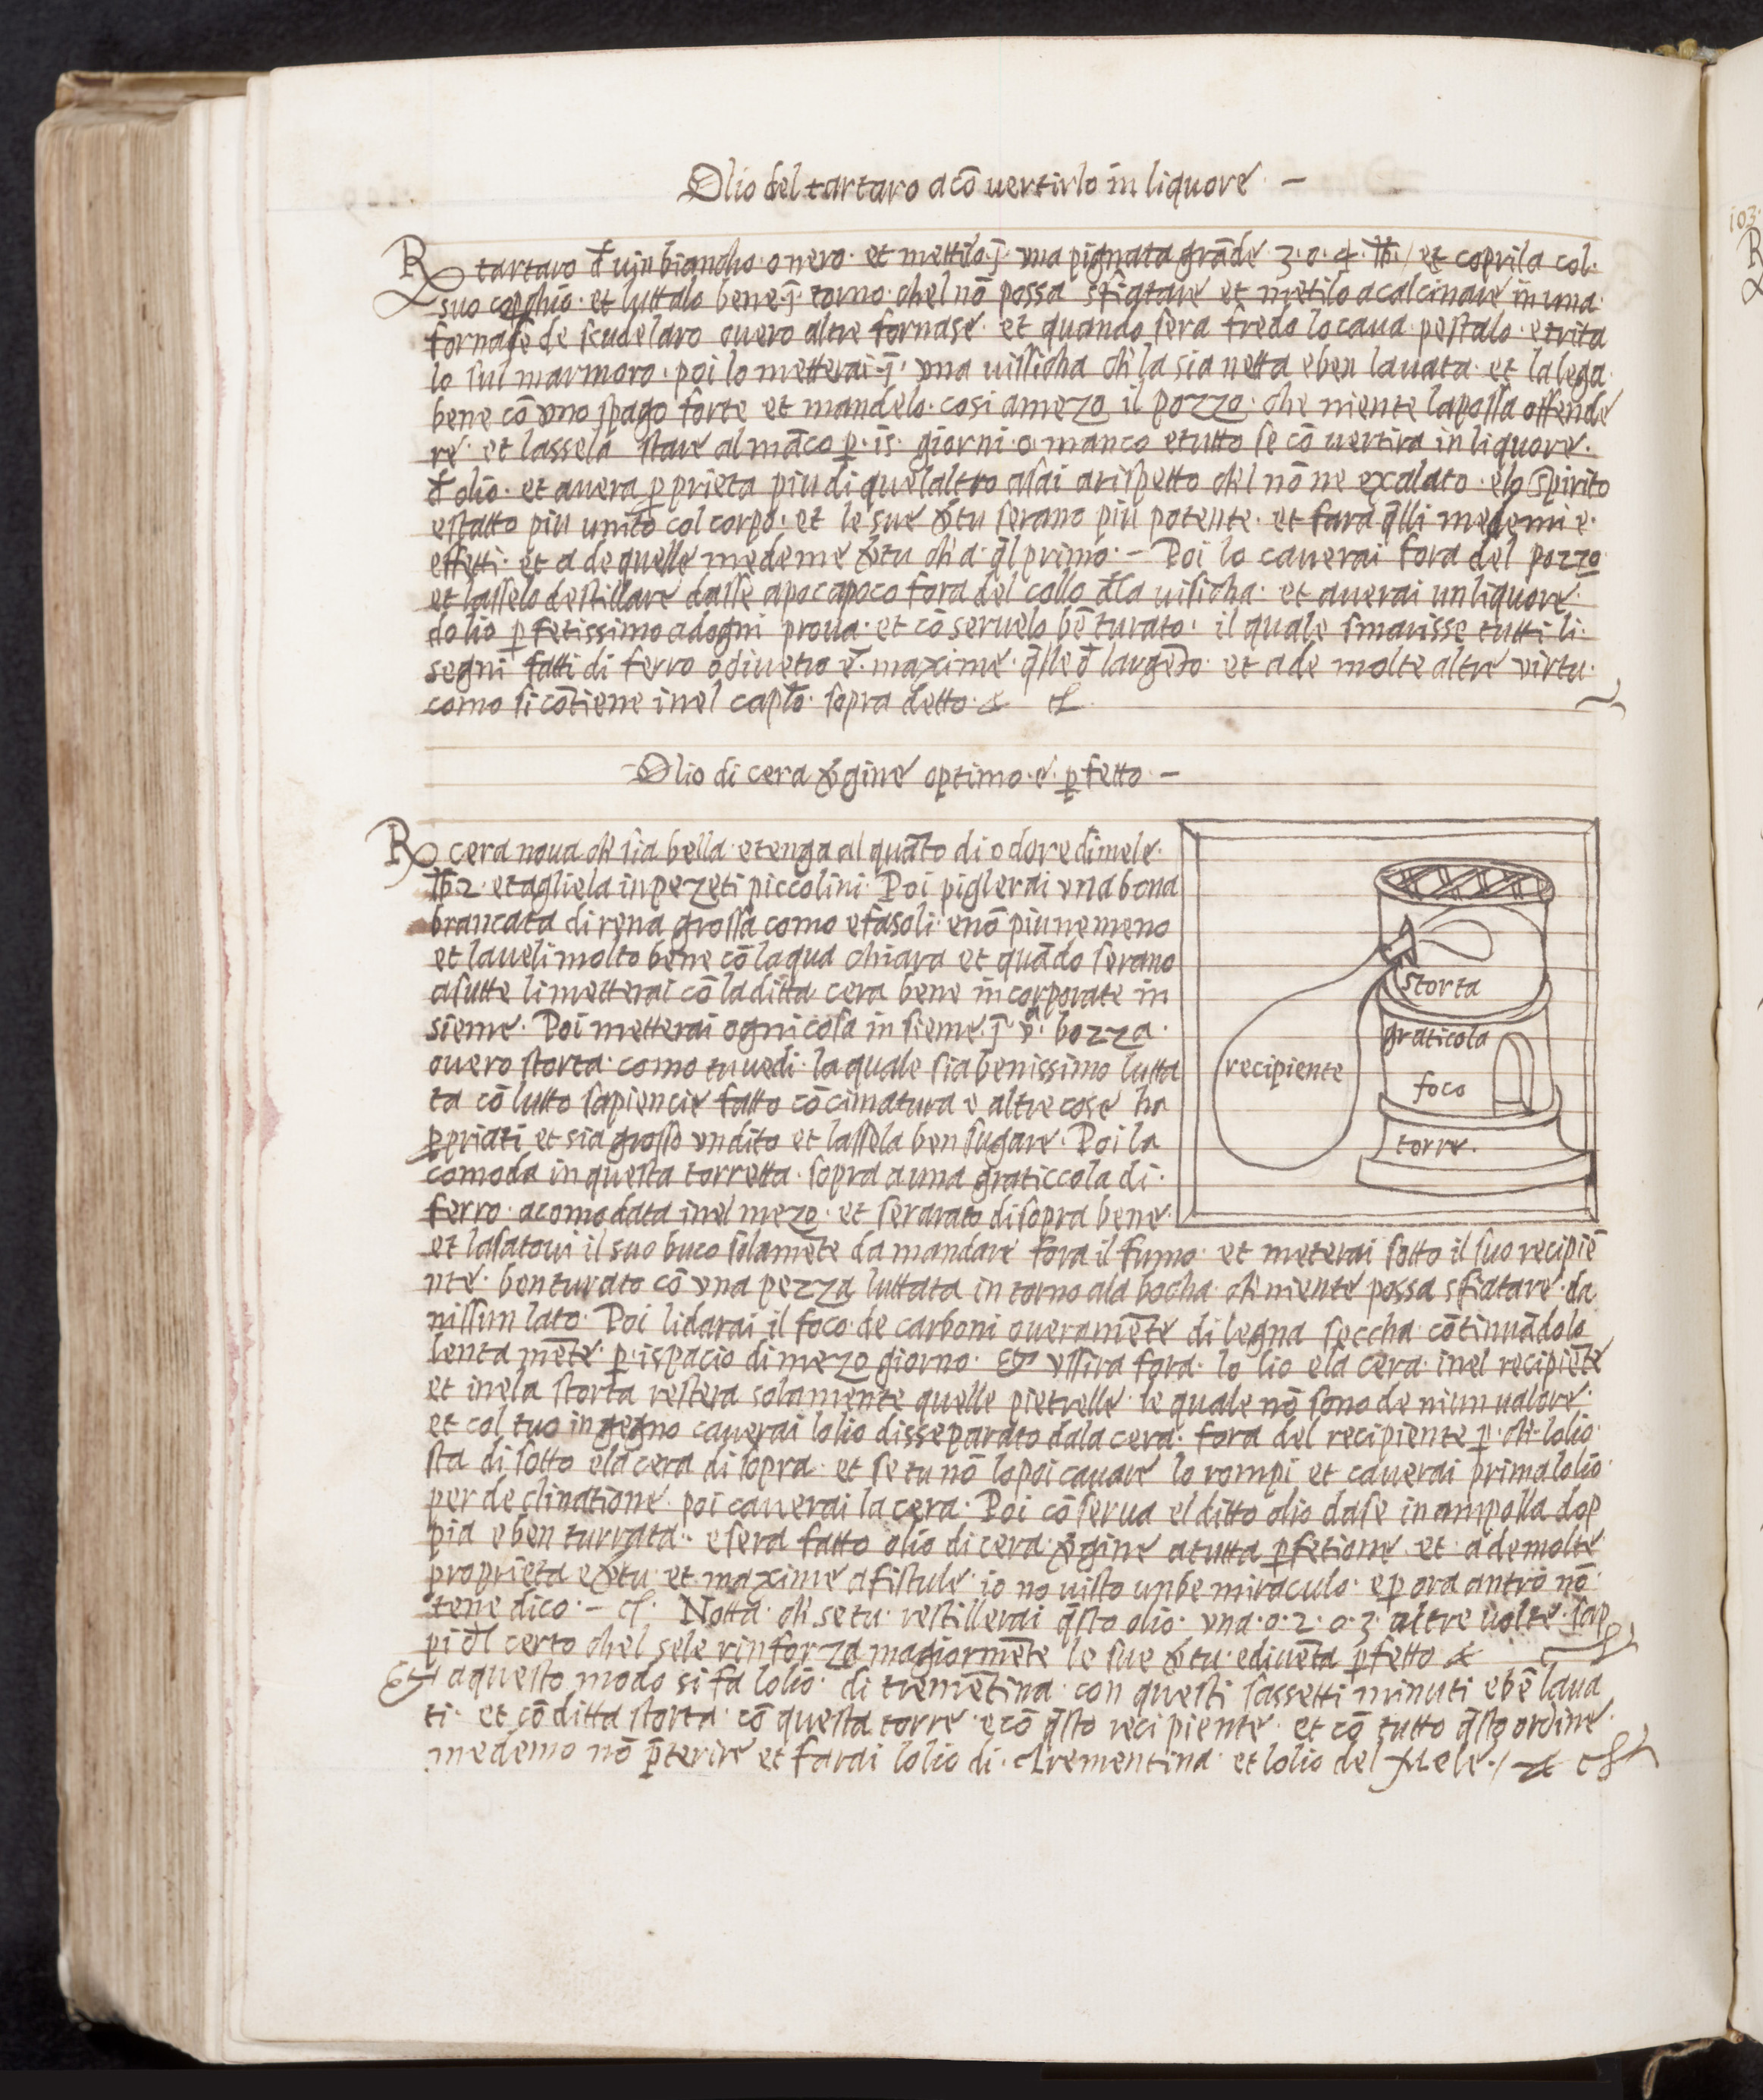 Olio del tartaro a cō uertirlo in liquore –
℞ tartaro đ uin biancho o nero· et mettilo·ī· una pignata grāde 3·o·4·℔·/ et coprila col·
suo copchio· et luttalo bene·ī· torno· chel nō possa sfiatare et metilo a calcinare in una·
fornase de scudelaro ouero altre fornase· et quando sera fredo lo caua· pestalo· e trita
lo sul marmoro· poi lo metterai·ī· una uissicha ch' la sia netta e ben lauata· et la lega·
bene cō uno spago forte et mandelo· cosi a mezo il pozzo· che niente la possa offende
re· et lassela stare al māco p̱· 15· giorni· o manco e tutto se cō uertira in liquore·
đ olio· et auera p̱prieta piu di quel altro assai a rispetto chel nō ne exalato· e lo spirito
e statto piu unito col corpo· et le sue v̄tu serano piu potente· et fara q̄lli medemi e·
effetti· et a de quelle medeme v̄tu ch' a· q̄l primo· – Poi lo cauerai fora del pozzo
et lasselo destillare da sse a poc a poco fora del collo đ la uisicha· et auerai un liquore·
d olio p̱fetissimo ad ogni proua· et cō seruelo bē turato· il quale smarisse tutti li·
segni fatti di ferro o di uetro ē· maxime· q̄lle đ largēto· et a de molte altre virtu·
como si cōtiene inel caplō· sopra detto· &
– Olio di cera v̄gine optimo· e· p̱fetto –
℞ cera noua ch' sia bella· e tenga al quāto di odore di mele·
℔ 2· e tagliela in pezeti piccolini· Poi piglerai una bona
brancata di rena grossa como e fasoli· e nō piu ne meno
et laueli molto bene cō laqua chiara et quādo serano
asutte li metterai cō la ditta cera bene in corporate in
sieme· Poi metterai ogni cosa in sieme·ī· vᵃ· bozza·
ouero storta· como tu uedi· la quale sia benissimo lutta
ta cō lutto sapiencie fatto cō cimatura e altre cose ha
p̱priati et sia grosso un dito et lassela ben sugare· Poi la
comoda in questa torretta· sopra a una graticcola di·
ferro· acomodata inel mezo· et serarato di sopra bene·
storta
graticola
recipiente
foco
torre·
et lasatoui il suo buco solamēte da mandare fora il fumo· et meterai sotto il suo recipiē
nte· ben turato cō una pezza luttata in torno ala bocha· ch' niente possa sfiatare· da
nissun lato· Poi li darai il foco· de carboni oueramēte di legna seccha· cōtinuādolo
lenta mēte· p̱· ispacio di mezo giorno· Et ussira fora· lo lio e la cera· inel recipiēte
et inela storta restera solamente quelle pietrelle· le quale nō sono de niun ualore·
et col tuo in gegno cauerai lolio disseparato dala cera· fora del recipiente p̱· ch' lolio·
sta di sotto e la cera di sopra· et se tu nō lo poi cauare lo rompi et cauerai prima lolio·
per de clinatione· poi cauerai la cera· Poi cō serua el ditto olio da se in ampolla dop
pia e ben turrata· e sera fatto olio di cera· v̄gine a tutta p̱fetione· et a de molte
proprieta e v̄tu· et maxime a fistule· io no uisto un be miraculo· e p̱ ora antro nō·
te ne dico· – Notta· ch' se tu restillerai q̄sto olio· una· o· 2· o· 3· altre uolte· sap
pi đl certo chel se le rinforza magiormēte le sue v̄tu· e diuēta p̱fetto &
Et a questo modo si fa lolio· di tremētina· con questi sassetti minuti e bē laua
ti· et cō ditta storta· cō questa torre· e cō q̄sto recipiente· et cō tutto q̄sto ordine·
medemo nō p̄terire et farai lolio di· trementina· et lolio del Mele·/ &
103·